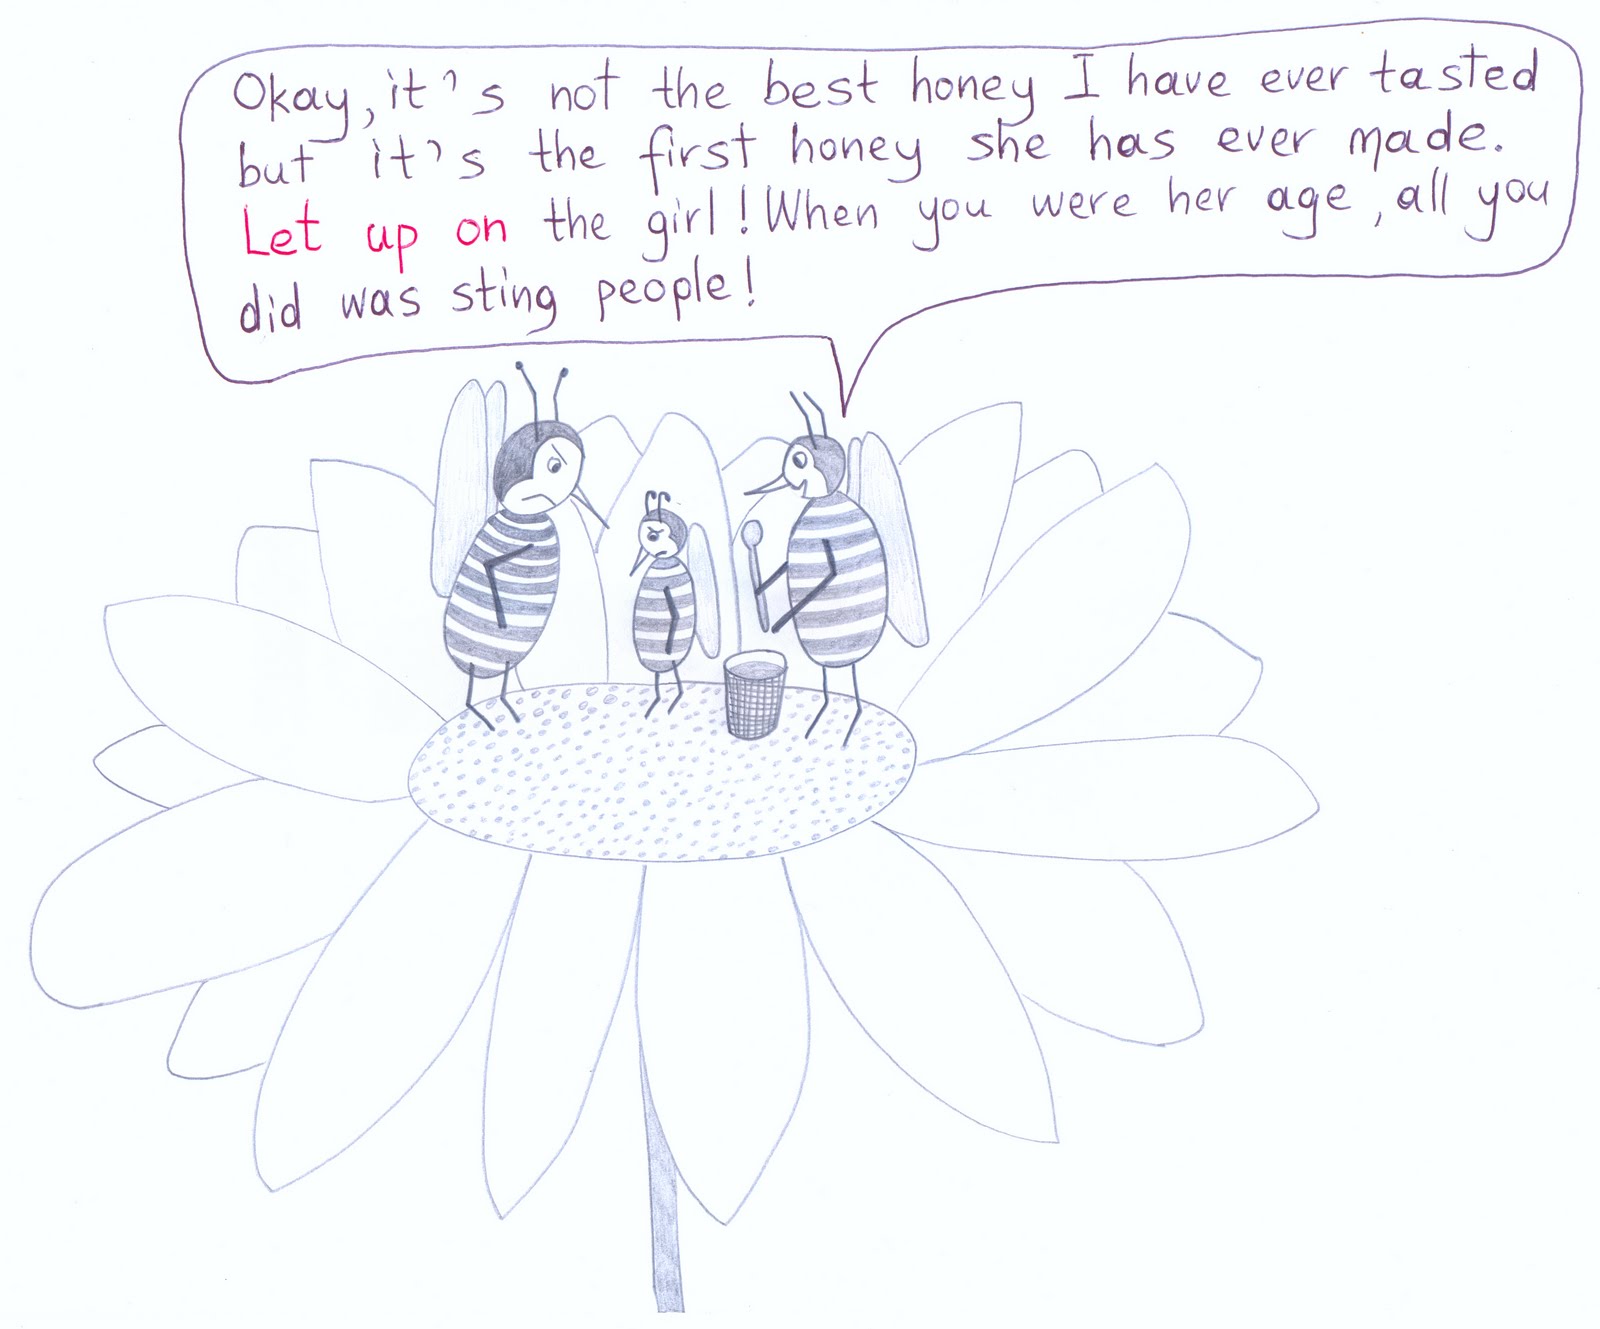 Okay, it's not the best honey I have ever tasted
but it's the first honey she has ever made.
Let up on the girl! When you were her age, all you
did was sting people!